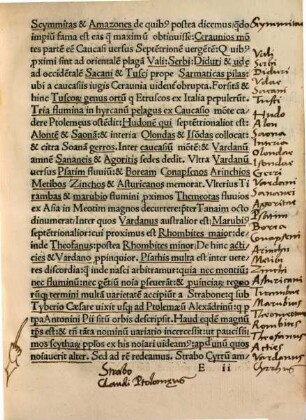 Scymmitas & Amazones de quibꝰ postea dicemusqñdo
impiũ fama est eas qͥ maximũ obtinuisse: Ceraunios mõ
tes parte eẽ Caucasi uersus Septẽtrionẽ uergẽtẽ: Q uibꝰ
pximi sint ad orientalẽ plagã Vali: Serbi: Diduri & ude
ad occidẽtalẽ Sacani & Tusci prope Sarmaticas pilas:
ubi a caucasiis iugis Ceraunia uidenẽ obrupta. Forsitã &
hinc Tuscoꝝ genus ortũ qͥ Etruscos ex Italia pepulerũt
Tria flumina in hyrcanũ pelagus ex Caucaso mõte ca
dere Ptolemeus ostẽdit: Hudonẽ qui septẽtrionalior est
Alontẽ & Saonã: & interia Olondas & Isõdas collocat:
& citra Soanã gerros. Inter caucasiũ mõtẽ: & Vardanũ
amnẽ Sananeis & Agoritis sedes dedit. Vltra Vardanũ
uersus Psatim fluuiũ: & Boream Conapsenos Arinchios
Metibos Zinchos & Asturicanos memorat. Vlterius Ti
rambas & marubio flumini pximos Themeotas fluuius
ex Asia in Meotim magnos decurrere: inpter Tanaim octo
dinumerat. Inter quos Vardanus australior est: Marubiꝰ
septẽtrionalior: cui proximus est Rhombites maior: de
inde Theofanus: postea Rhombites minor: De hinc acti
cies & Vardano ppinquior. Psathis multa est inter ue
teres discordia: qͣ inde nasci arbitramur: quia nec montiũ:
nec fluminũ: nec gẽtiũ noia pseuerat: & puincias: regno
rũqͥ termini multã uarietatẽ accipiũt a Strabone: qͥ sub
Tyberio Cæsare uixit usqͥ ad Ptolemæũ Alexãdrinũ: qͥ p
tpa Antonini Pii sitũ orbis descripsit. Haud eqdẽ magnũ
tps est: & tñ tãta nominũ uariatio incerescit: ut pauciissi
mos scythaꝝ pplos ex his noiari uideaꝰ: apũ unũ quos
nosauerit alter. Sed ad rẽ redeamus. Strabo Cyrrũ am
E ii
Scymmitas
Vali
Serbi
Diduri
Vdae
Sacani
Tusci
Hudo
Alon
Olondae
Isondae
Gerri
Vardanus
Sananei
Agoritae
Psatis
Borea
Conapseni
Arinchi
Metibi
Zinchi
Asturicani
Tirambae
Marubius
Themeotae
Rombites
Theofanus
Acties
Vardanus
Cyrrhus
Strabo
Claudi Ptolomæus